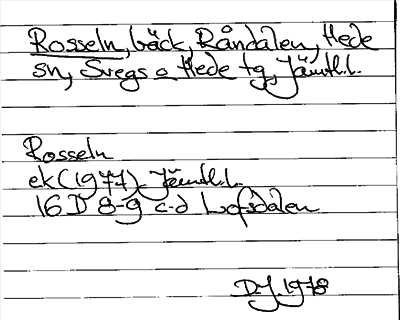 Rosseln, bäck, Råndalen, Hede
sn, Svegs o Hede tg, Jämtl.l.
Rosseln
ek (1977). Jämtl.l.
16 D 8-9 c-d Lofsdalen
DJ. 1978